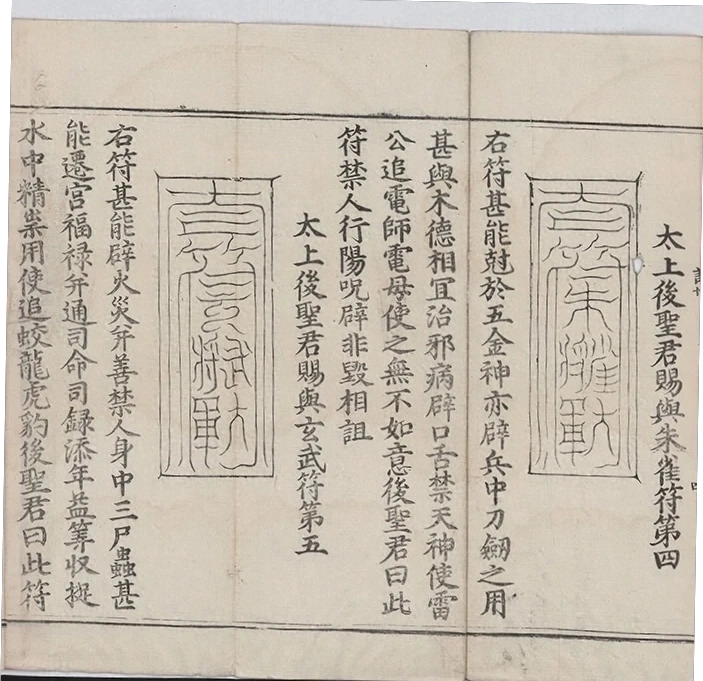 太上後聖君賜與朱雀符第四
右符甚能尅於五金神亦辟兵中刀劒之用
甚與木德相宜治邪病辟口舌禁天神使雷
公追電師電母使之無不如意後聖君曰此
符禁人行陽呪辟非毀相詛
太上後聖君賜與玄武符第五
右符甚能辟火災并善禁人身中三尸蟲甚
能遷宮福禄并通司命司録添年益筭収捉
水中精祟用使追蛟龍虎豹後聖君曰此符